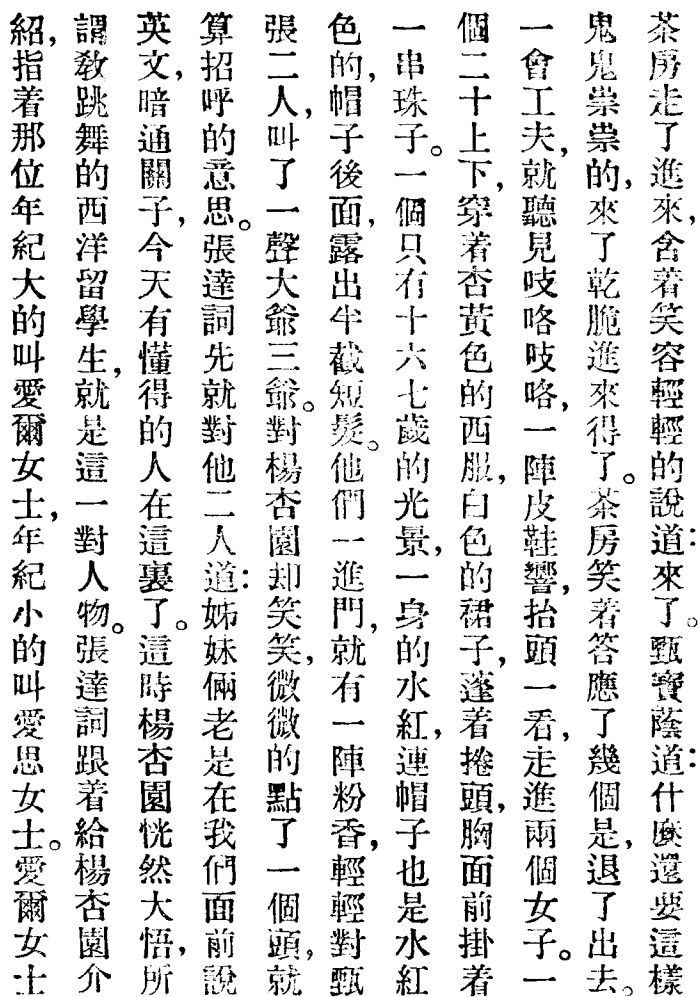 茶房走了進來，含着笑容輕輕的說道：來了。甄寶蔭道：什麽還要這樣
鬼鬼祟祟的，來了乾脆進來得了。茶房笑着答應了幾個是，退了出去。
一會工夫，就聽見吱咯吱咯，一陣皮鞋響，抬頭一看，走進兩個女子。一
個二十上下，穿着杏黃色的西服，白色的裙子，蓬着捲頭，胸面前掛着
一串珠子。一個只有十六七歲的光景，一身的水紅，連帽子也是水紅
色的，帽子後面，露出半截短髮。他們一進門，就有一陣粉香，輕輕對甄
張二人，叫了一聲大爺三爺。對楊杏園却笑笑，微微的點了一個頭，就
算招呼的意思。張達詞先就對他二人道：姊妹倆老是在我們面前說
英文，暗通關子，今天有懂得的人在這裏了。這時楊杏園恍然大悟，所
謂敎跳舞的西洋留學生，就是這一對人物。張達詞跟着給楊杏園介
紹，指着那位年紀大的叫愛爾女士，年紀小的叫愛思女士。愛爾女士